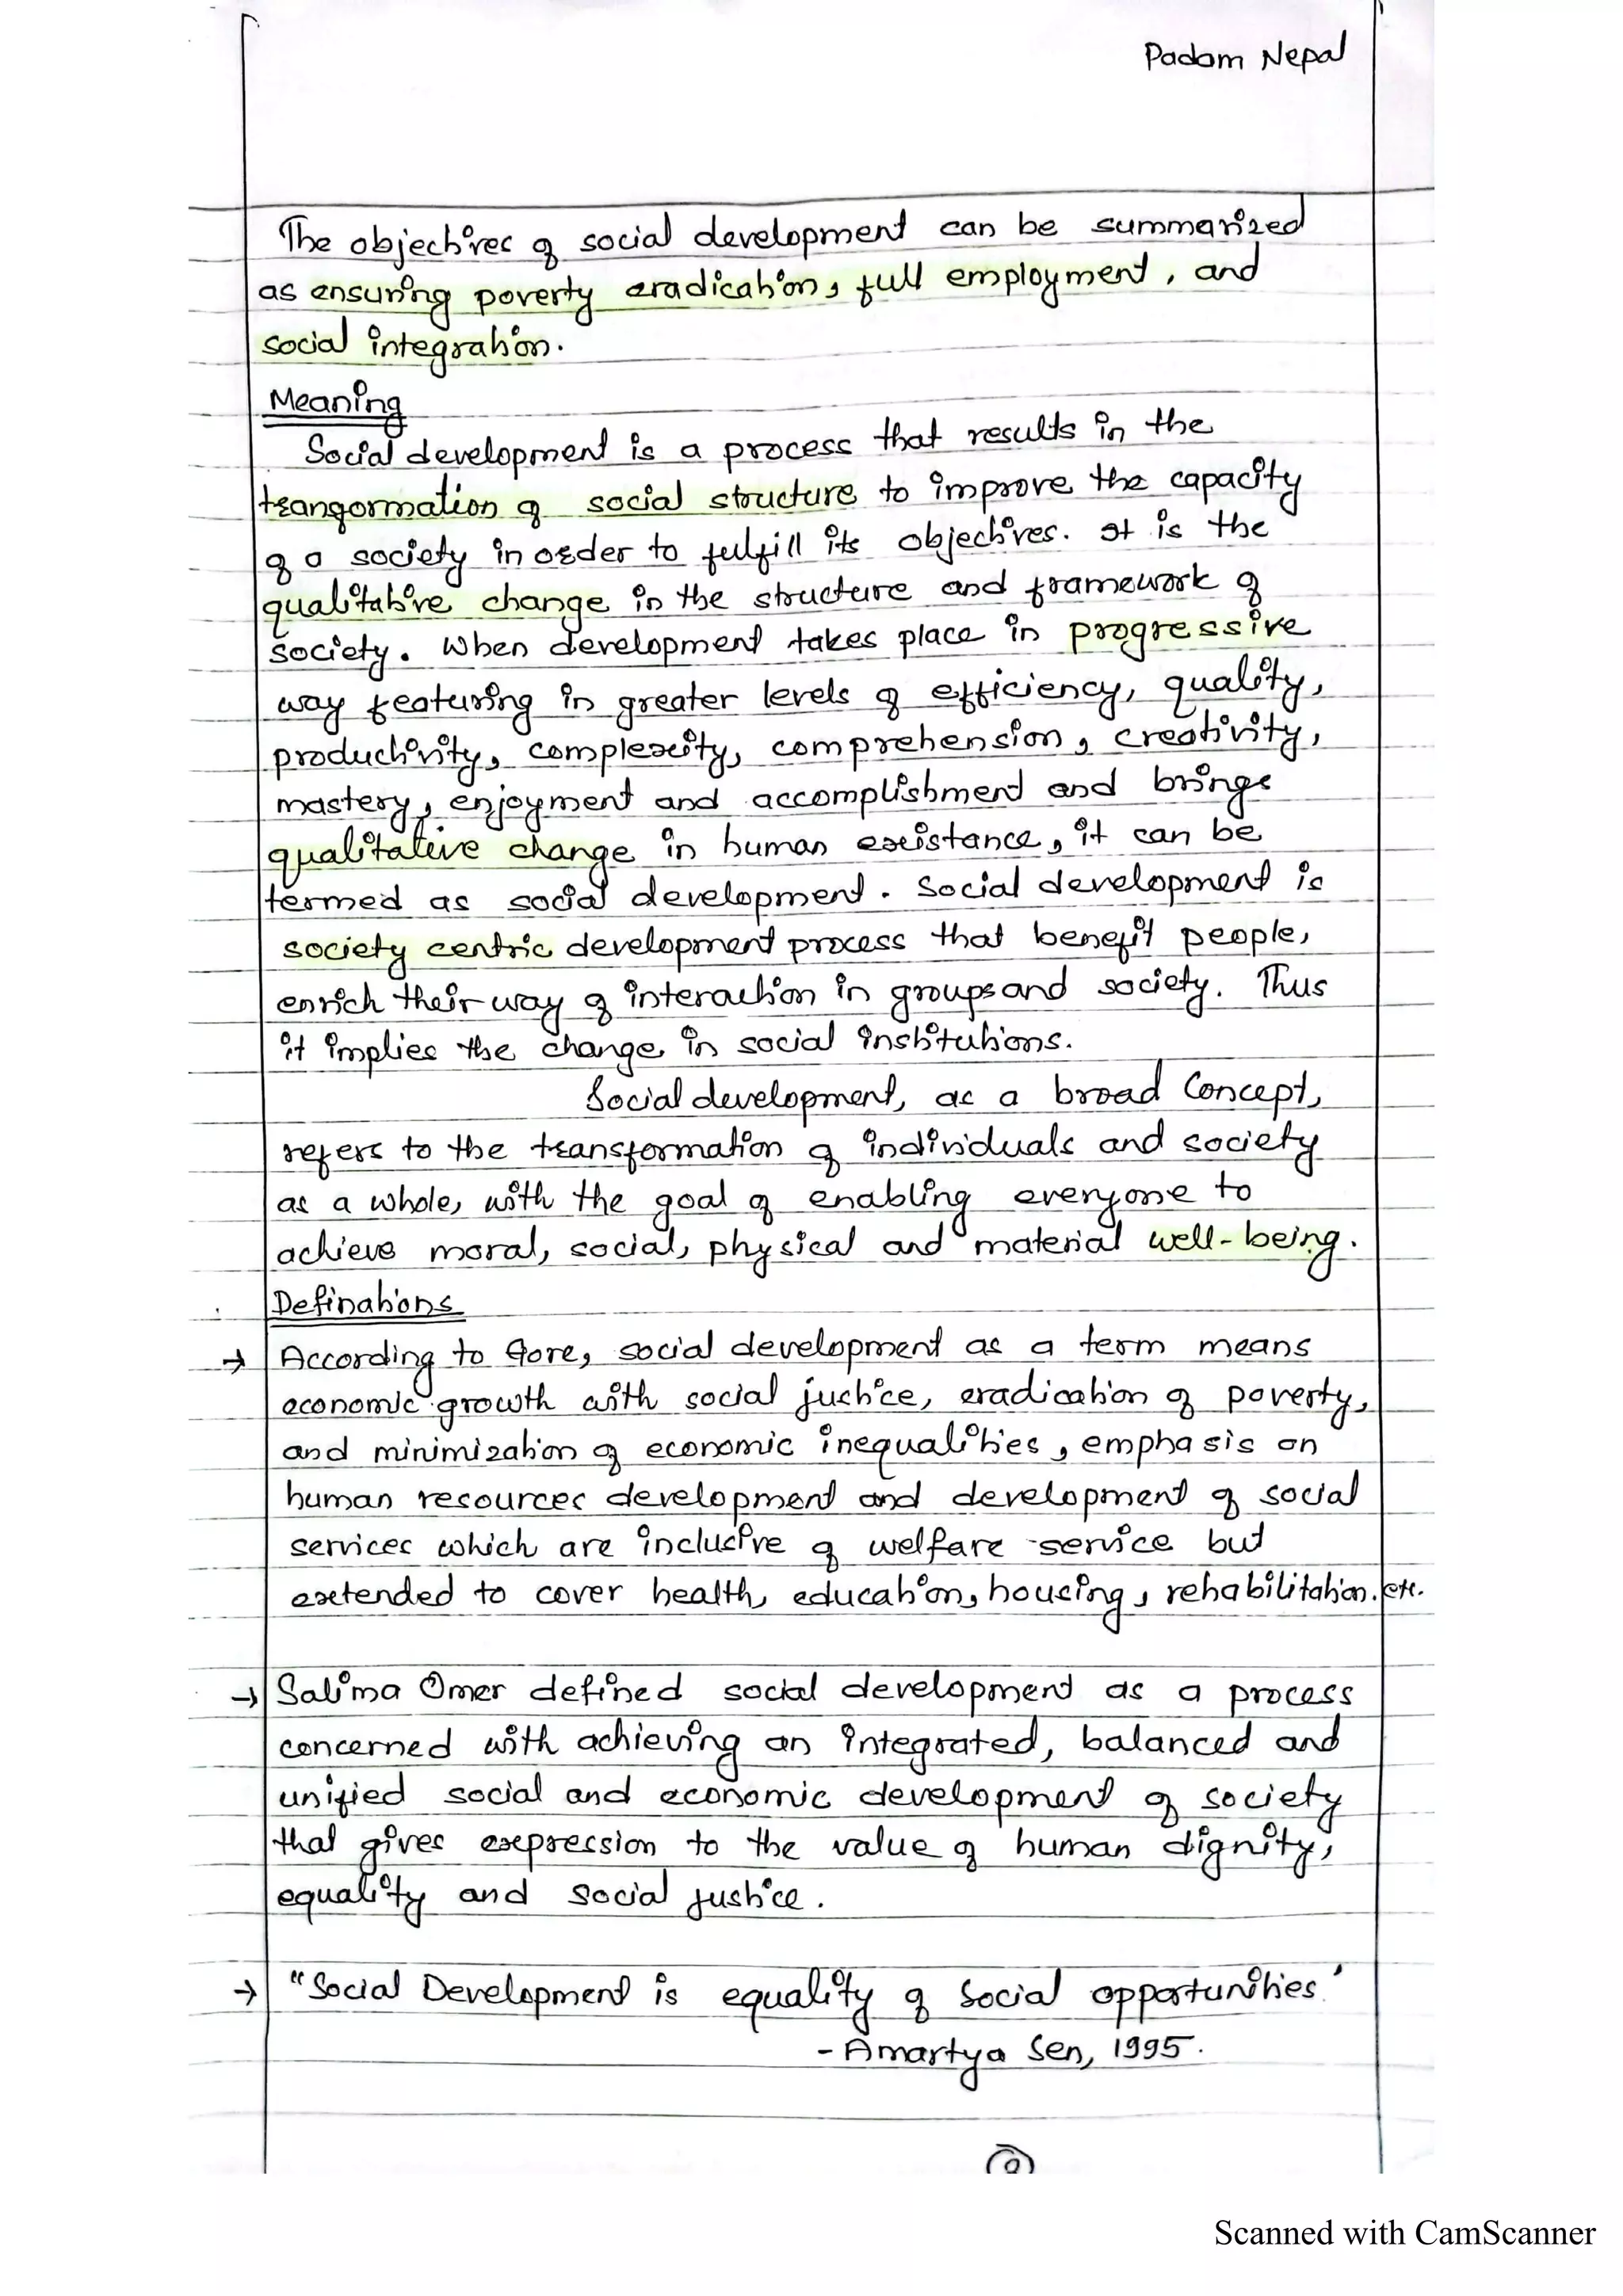 Padam Nepal
The objectives of social development can be summarized
as ensuring poverty eradication, full employment, and
social integration.
Meaning
Social development is a process that results in the
trangormation of social structure to improve the capacity
of a society in order to fulfill its objectives. It is the
qualitative change in the structure and framework of
society. When development takes place in progressive
way featuring in greater levels of efficiency, quality,
productivity, complexity, comprehension, creativity,
mastery, enjoyment and accomplishment and brings
qualitative change in human existance, it can be
termed as social development. Social development is
society centric development process that benefit people,
enrich their way of interaction in groups and society. Thus
it implies the change in social institutions.
Social development, as a broad Concept,
refers to the transformation of individuals and society
as a whole, with the goal of enabling everyone to
achieve moral, social, physical and material well-being.
Definations
→ According to Gore, social development as a term means
economic growth with social justice, eradication of poverty,
and minimization of economic inequalities, emphasis on
human resources development and development of social
services which are inclusive of welfare service but
extended to cover health, education, housing, rehabilitation. etc.
→ Salima Omer defined social development as a process
concerned with achieving an integrated, balanced and
unified social and economic development of society
that gives expression to the value of human dignity,
equality and social justice.
→ "Social Development is equality of Social opportunities'
- Amartya Sen, 1995.
Scanned with CamScanner